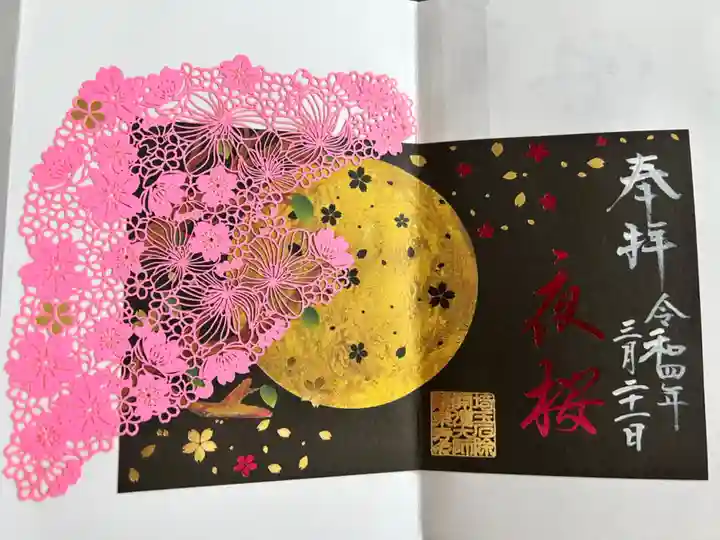 奉拝
令和四年
三月二十一日
夜桜